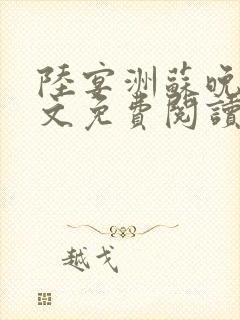 陸宴洲蘇晚
文免費閱讀
越戈